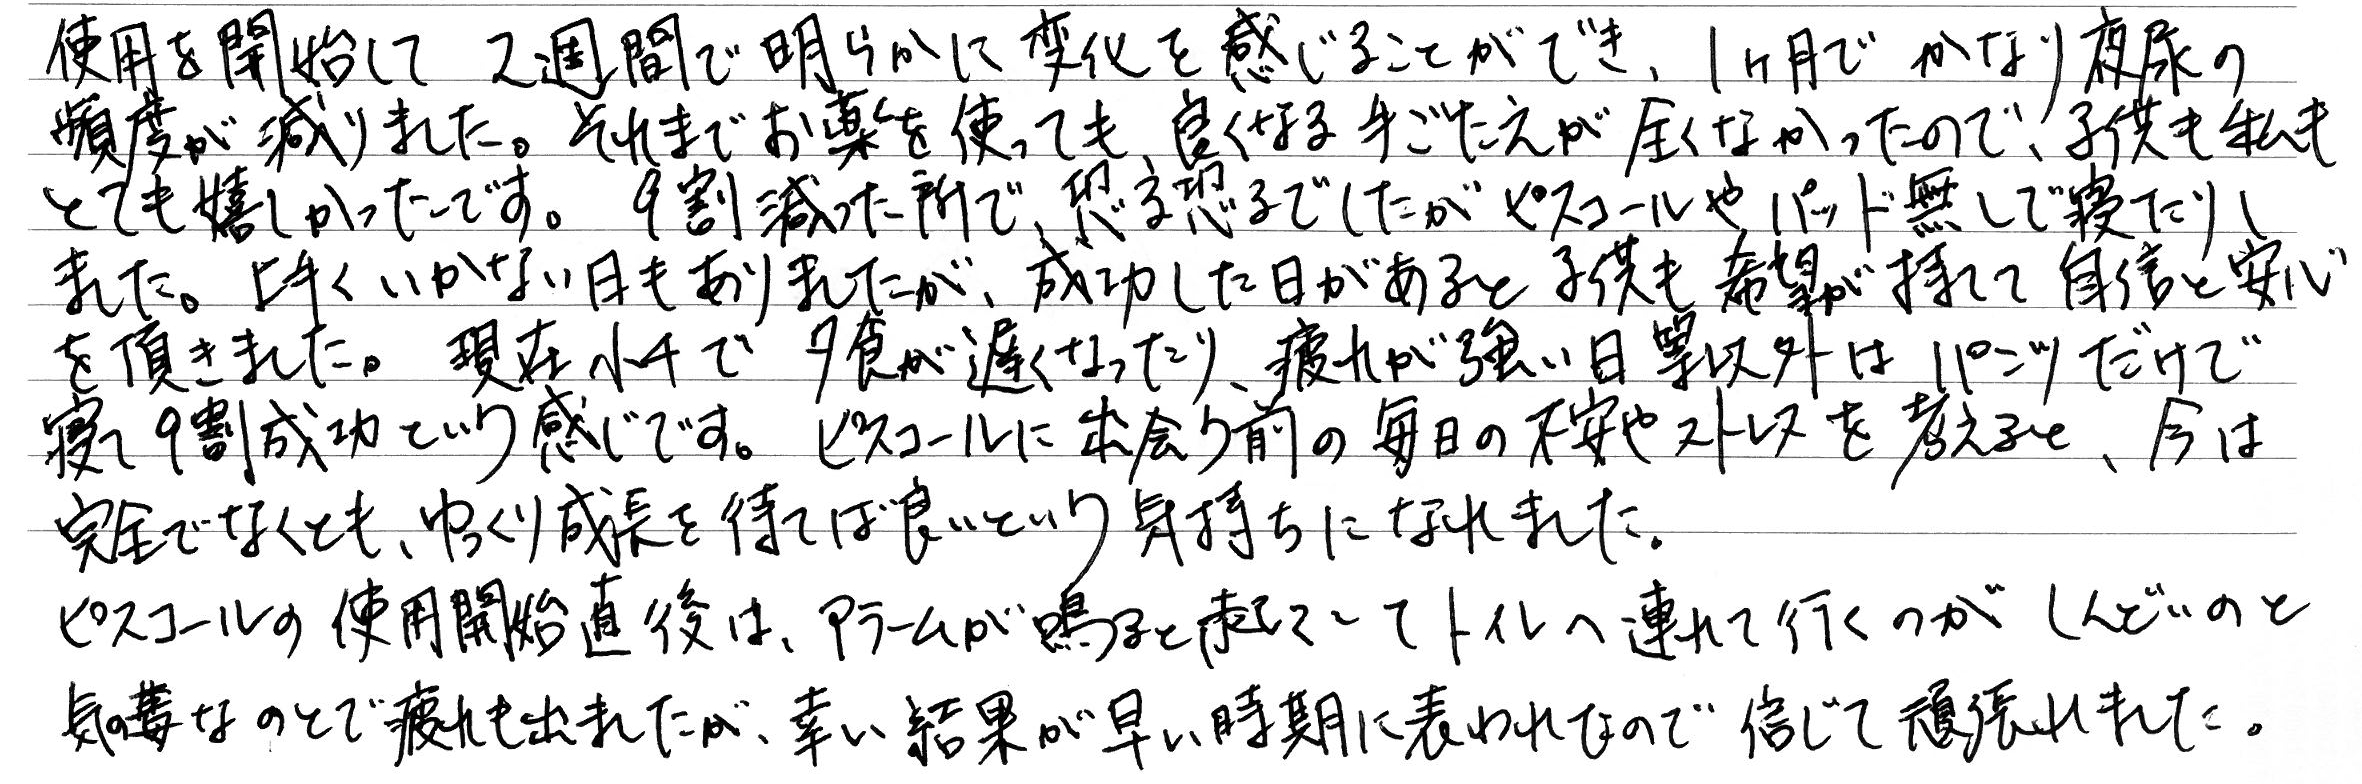 使用を開始して 2週間で明らかに変化を感じることができ、1ヶ月でかなり夜尿の
頻度が減りました。それまでお薬を使っても、良くなる手ごたえが全くなかったので、子供も私も
とても嬉しかったです。9割減った所で、恐る恐るでしたがピスコールやパッド無しで寝たりし
ました。上手くいかない日もありましたが、成功した日があると子供も希望が持てて自信と安心
を頂きました。現在小4で夕食が遅くなったり、疲れが強い日等以外はパンツだけで
寝て9割成功という感じです。ピスコールに出会う前の毎日の不安やストレスを考えると、今は
完全でなくとも、ゆっくり成長を待てば良いという気持ちになれました。
ピスコールの使用開始直後は、アラームが鳴ると起こしてトイレへ連れて行くのがしんどいのと
気の毒なのとで疲れも出ましたが、幸い結果が早い時期に表われたので信じて頑張れました。